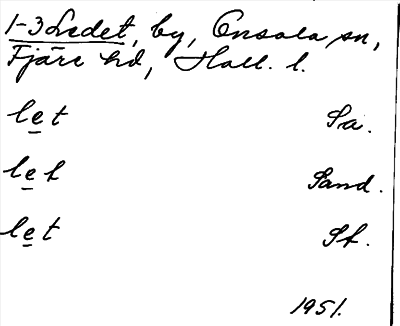 1-3 Ledet, by, Onsala sn,
Fjäre hd, Hall. l.
let Sa.
let Sand.
let St.
1951.